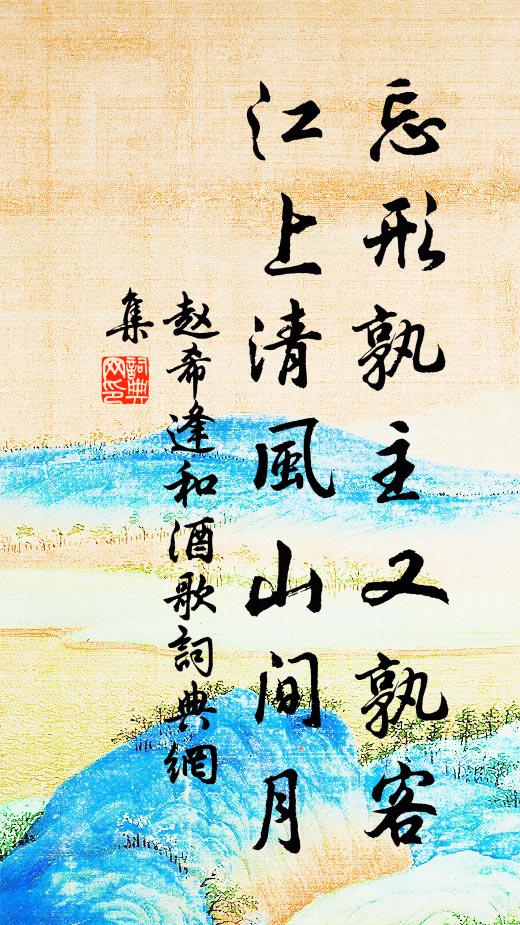 忘形孰主又孰客
江上清風山間月
赵希逢和酒歌詞典網
集
詞典
网印